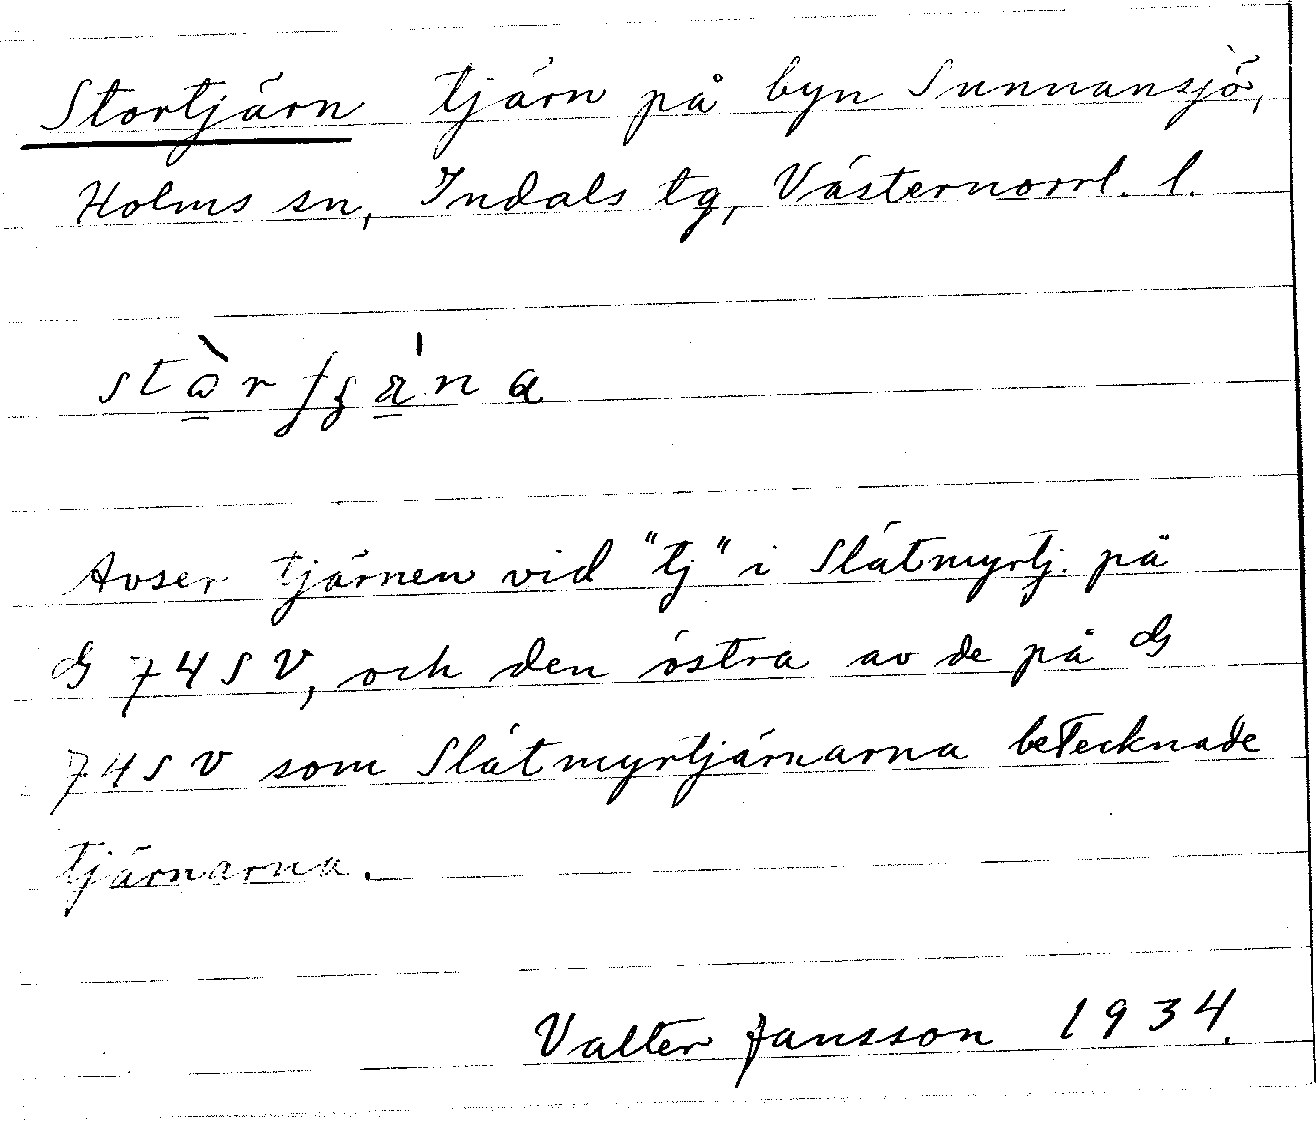 Stortjärn tjärn på byn Sunnansjö,
Holms sn, Indals tg, Västernorrl. l.
Avser tjärnen vid "tj" i Slåtmyrtj. på
G 74 SV, och den östra av de på G
74 SV som Slåtmyrtjärnarna betecknade
tjärnarna.
Valter Jansson 1934.